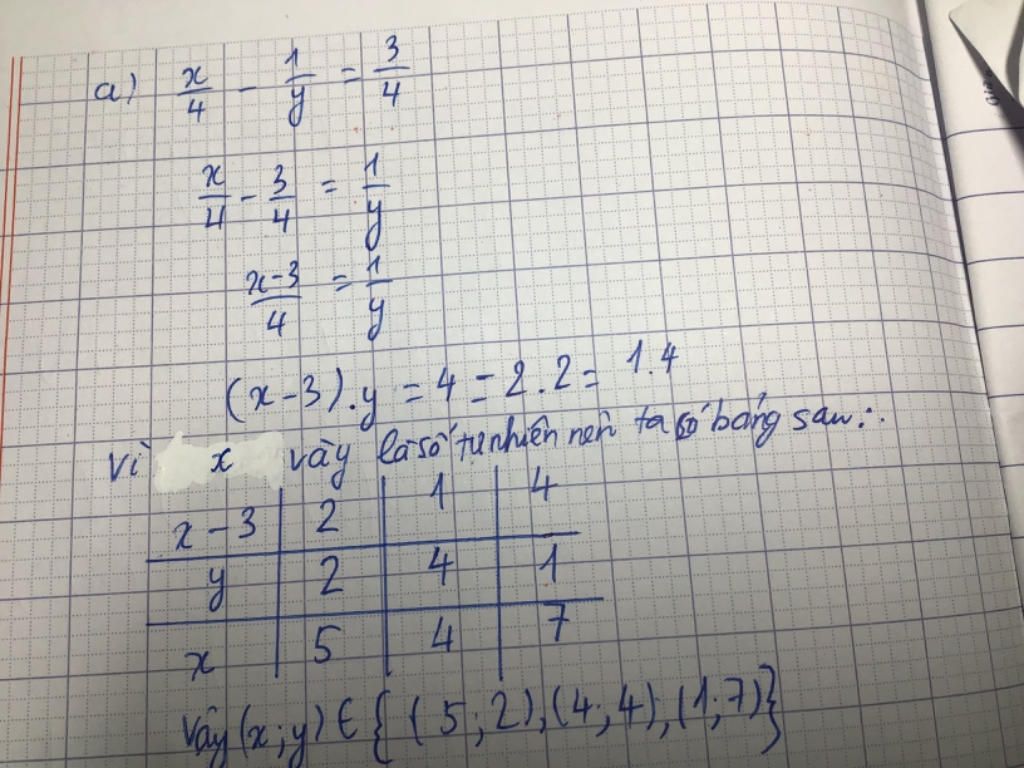 a) x/4 - 1/y = 3/4
x/4 - 3/4 = 1/y
x-3/4 = 1/y
(x-3).y = 4 = 2.2 = 1.4
Vì x vày là số tự nhiên nên ta có bảng sau:
x-3 | 2 | 1 | 4
y | 2 | 4 | 1
x | 5 | 4 | 7
Vậy (x;y) ∈ {(5;2),(4;4),(1;7)}